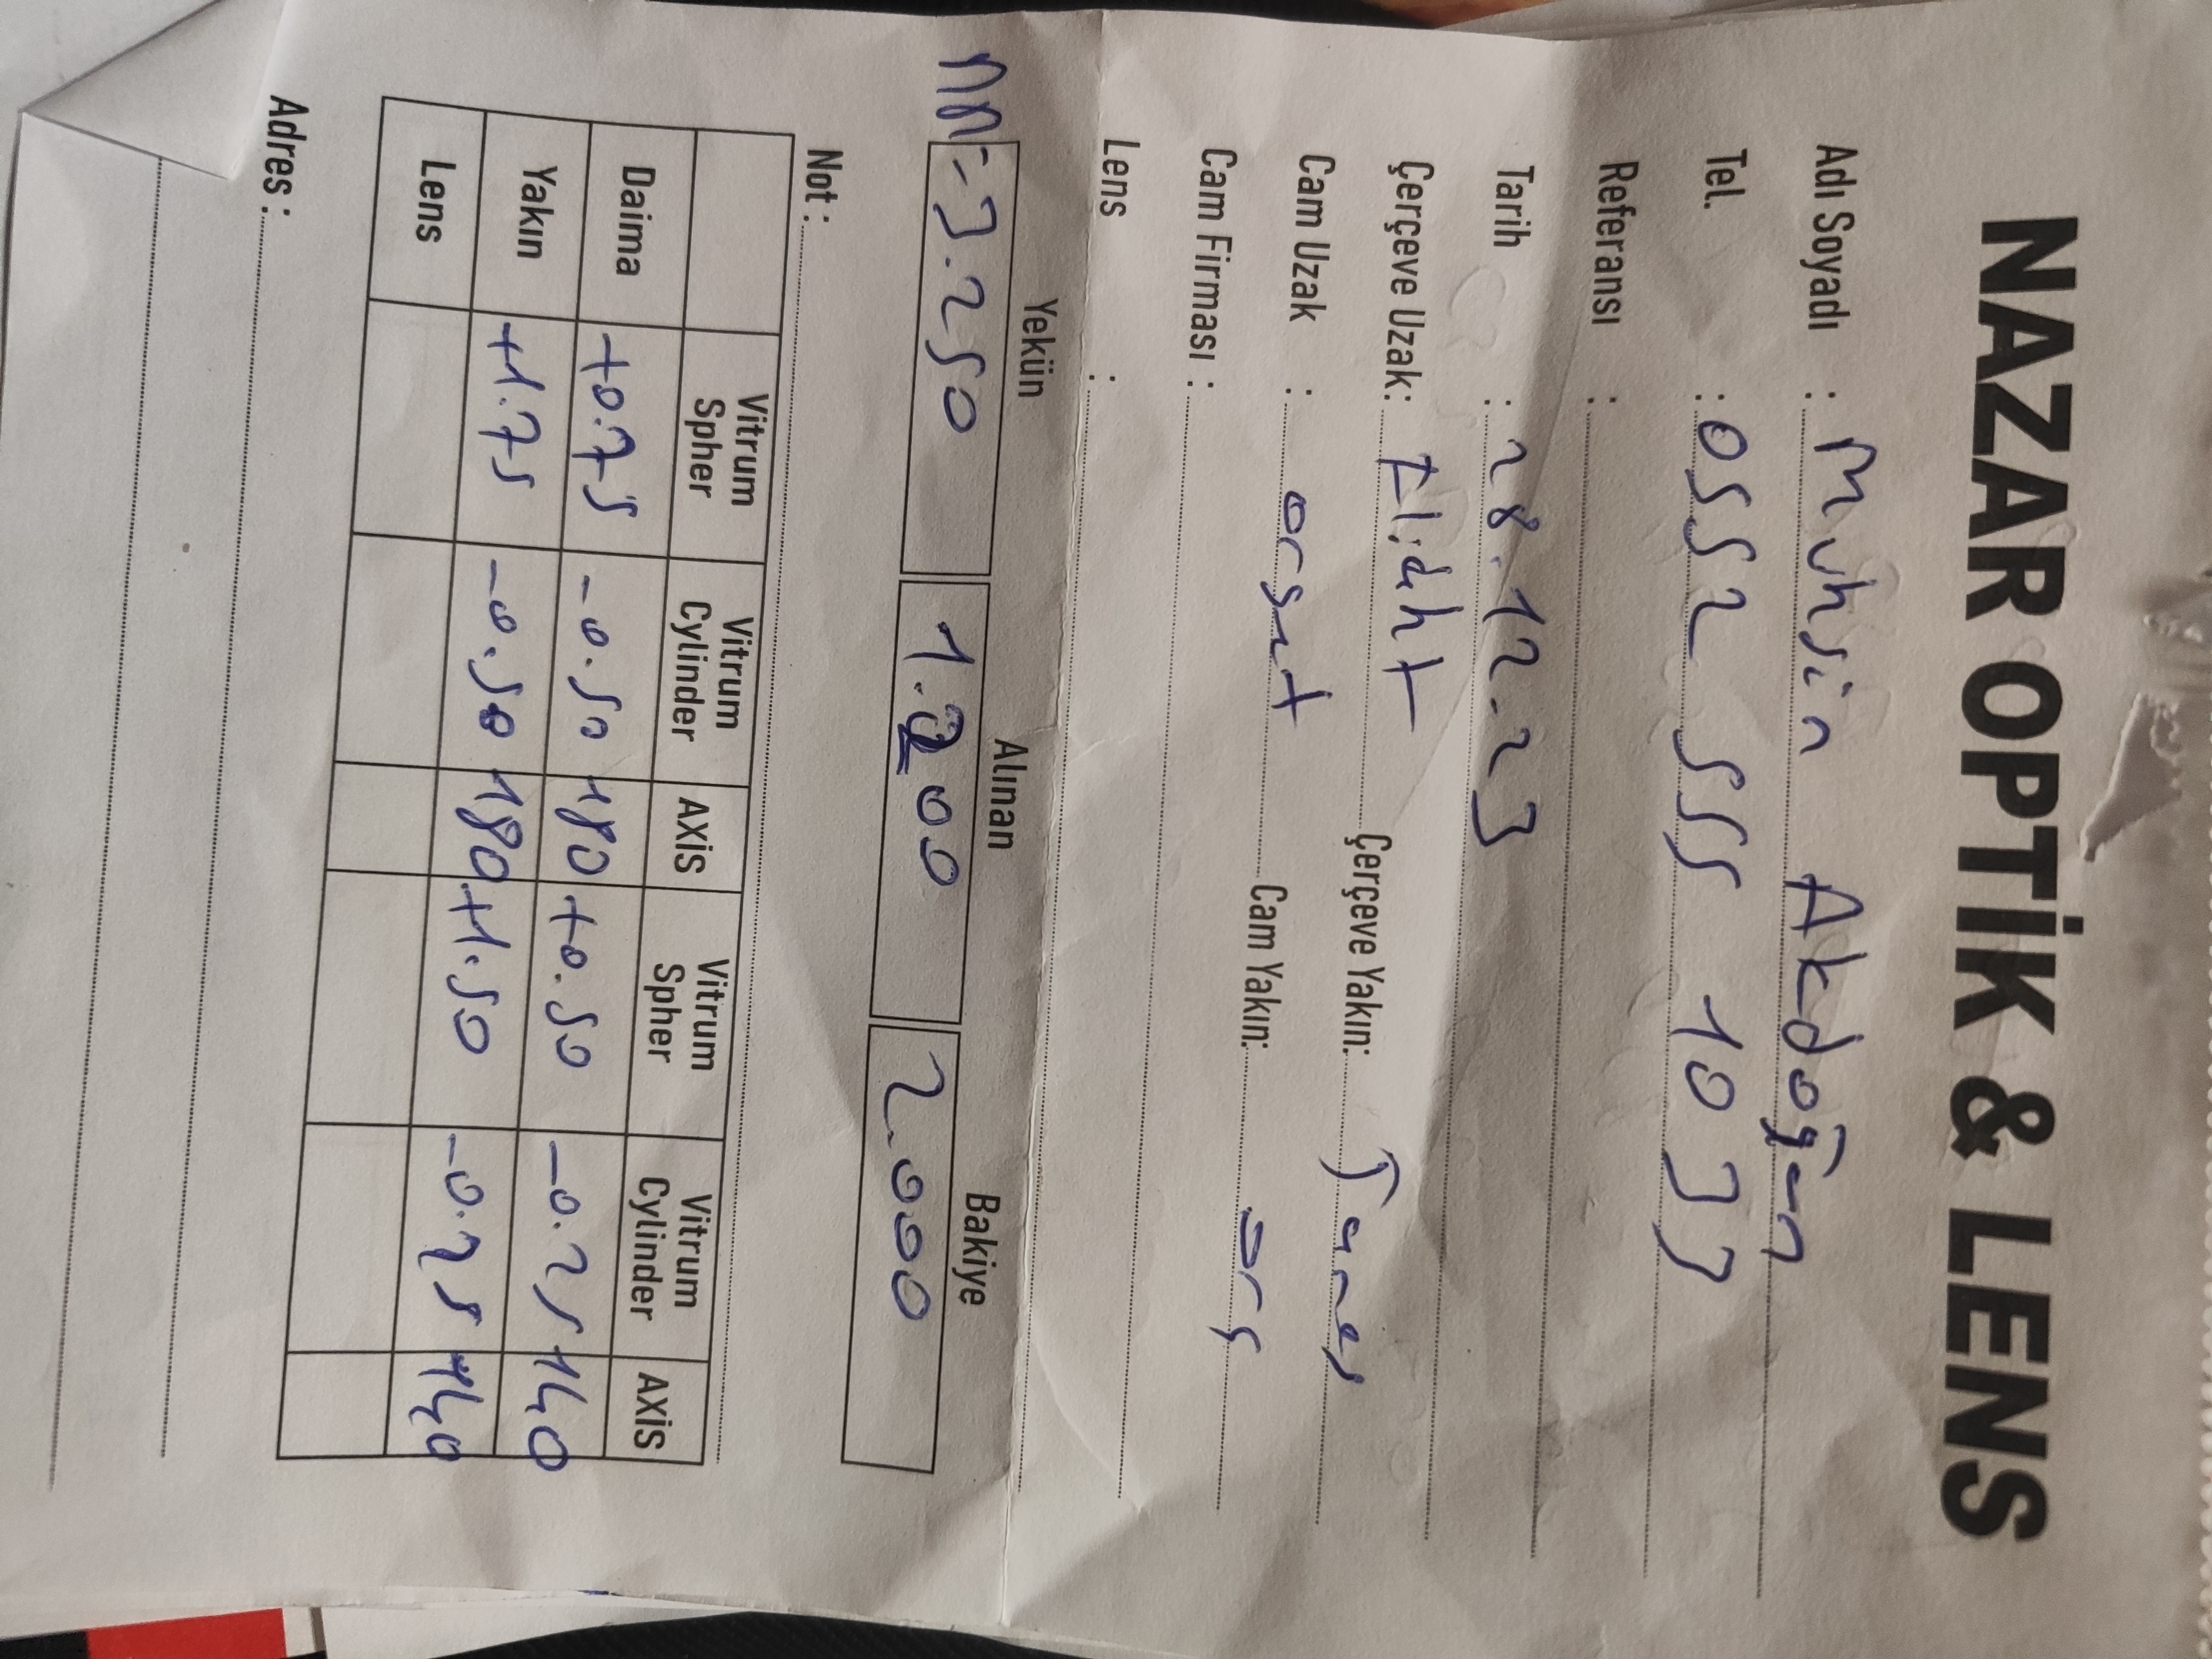 NAZAR OPTİK & LENS
Adı Soyadı : Muhsin Akdoğan
Tel. : 0552 555 10 33
Referansı :
Tarih : 28.12.23
Çerçeve Uzak: Çerçeve Yakın:
Cam Uzak : orset Cam Yakın: ors
Cam Firması :
Lens :
Yekün Alınan Bakiye
3.250 1.200 2.000
Not :
Vitrum Spher Vitrum Cylinder AXIS Vitrum Spher Vitrum Cylinder AXIS
Daima +0.75 -0.50 180 +0.50 -0.25 140
Yakın +1.75 -0.50 180 +1.50 -0.25 140
Lens
Adres :